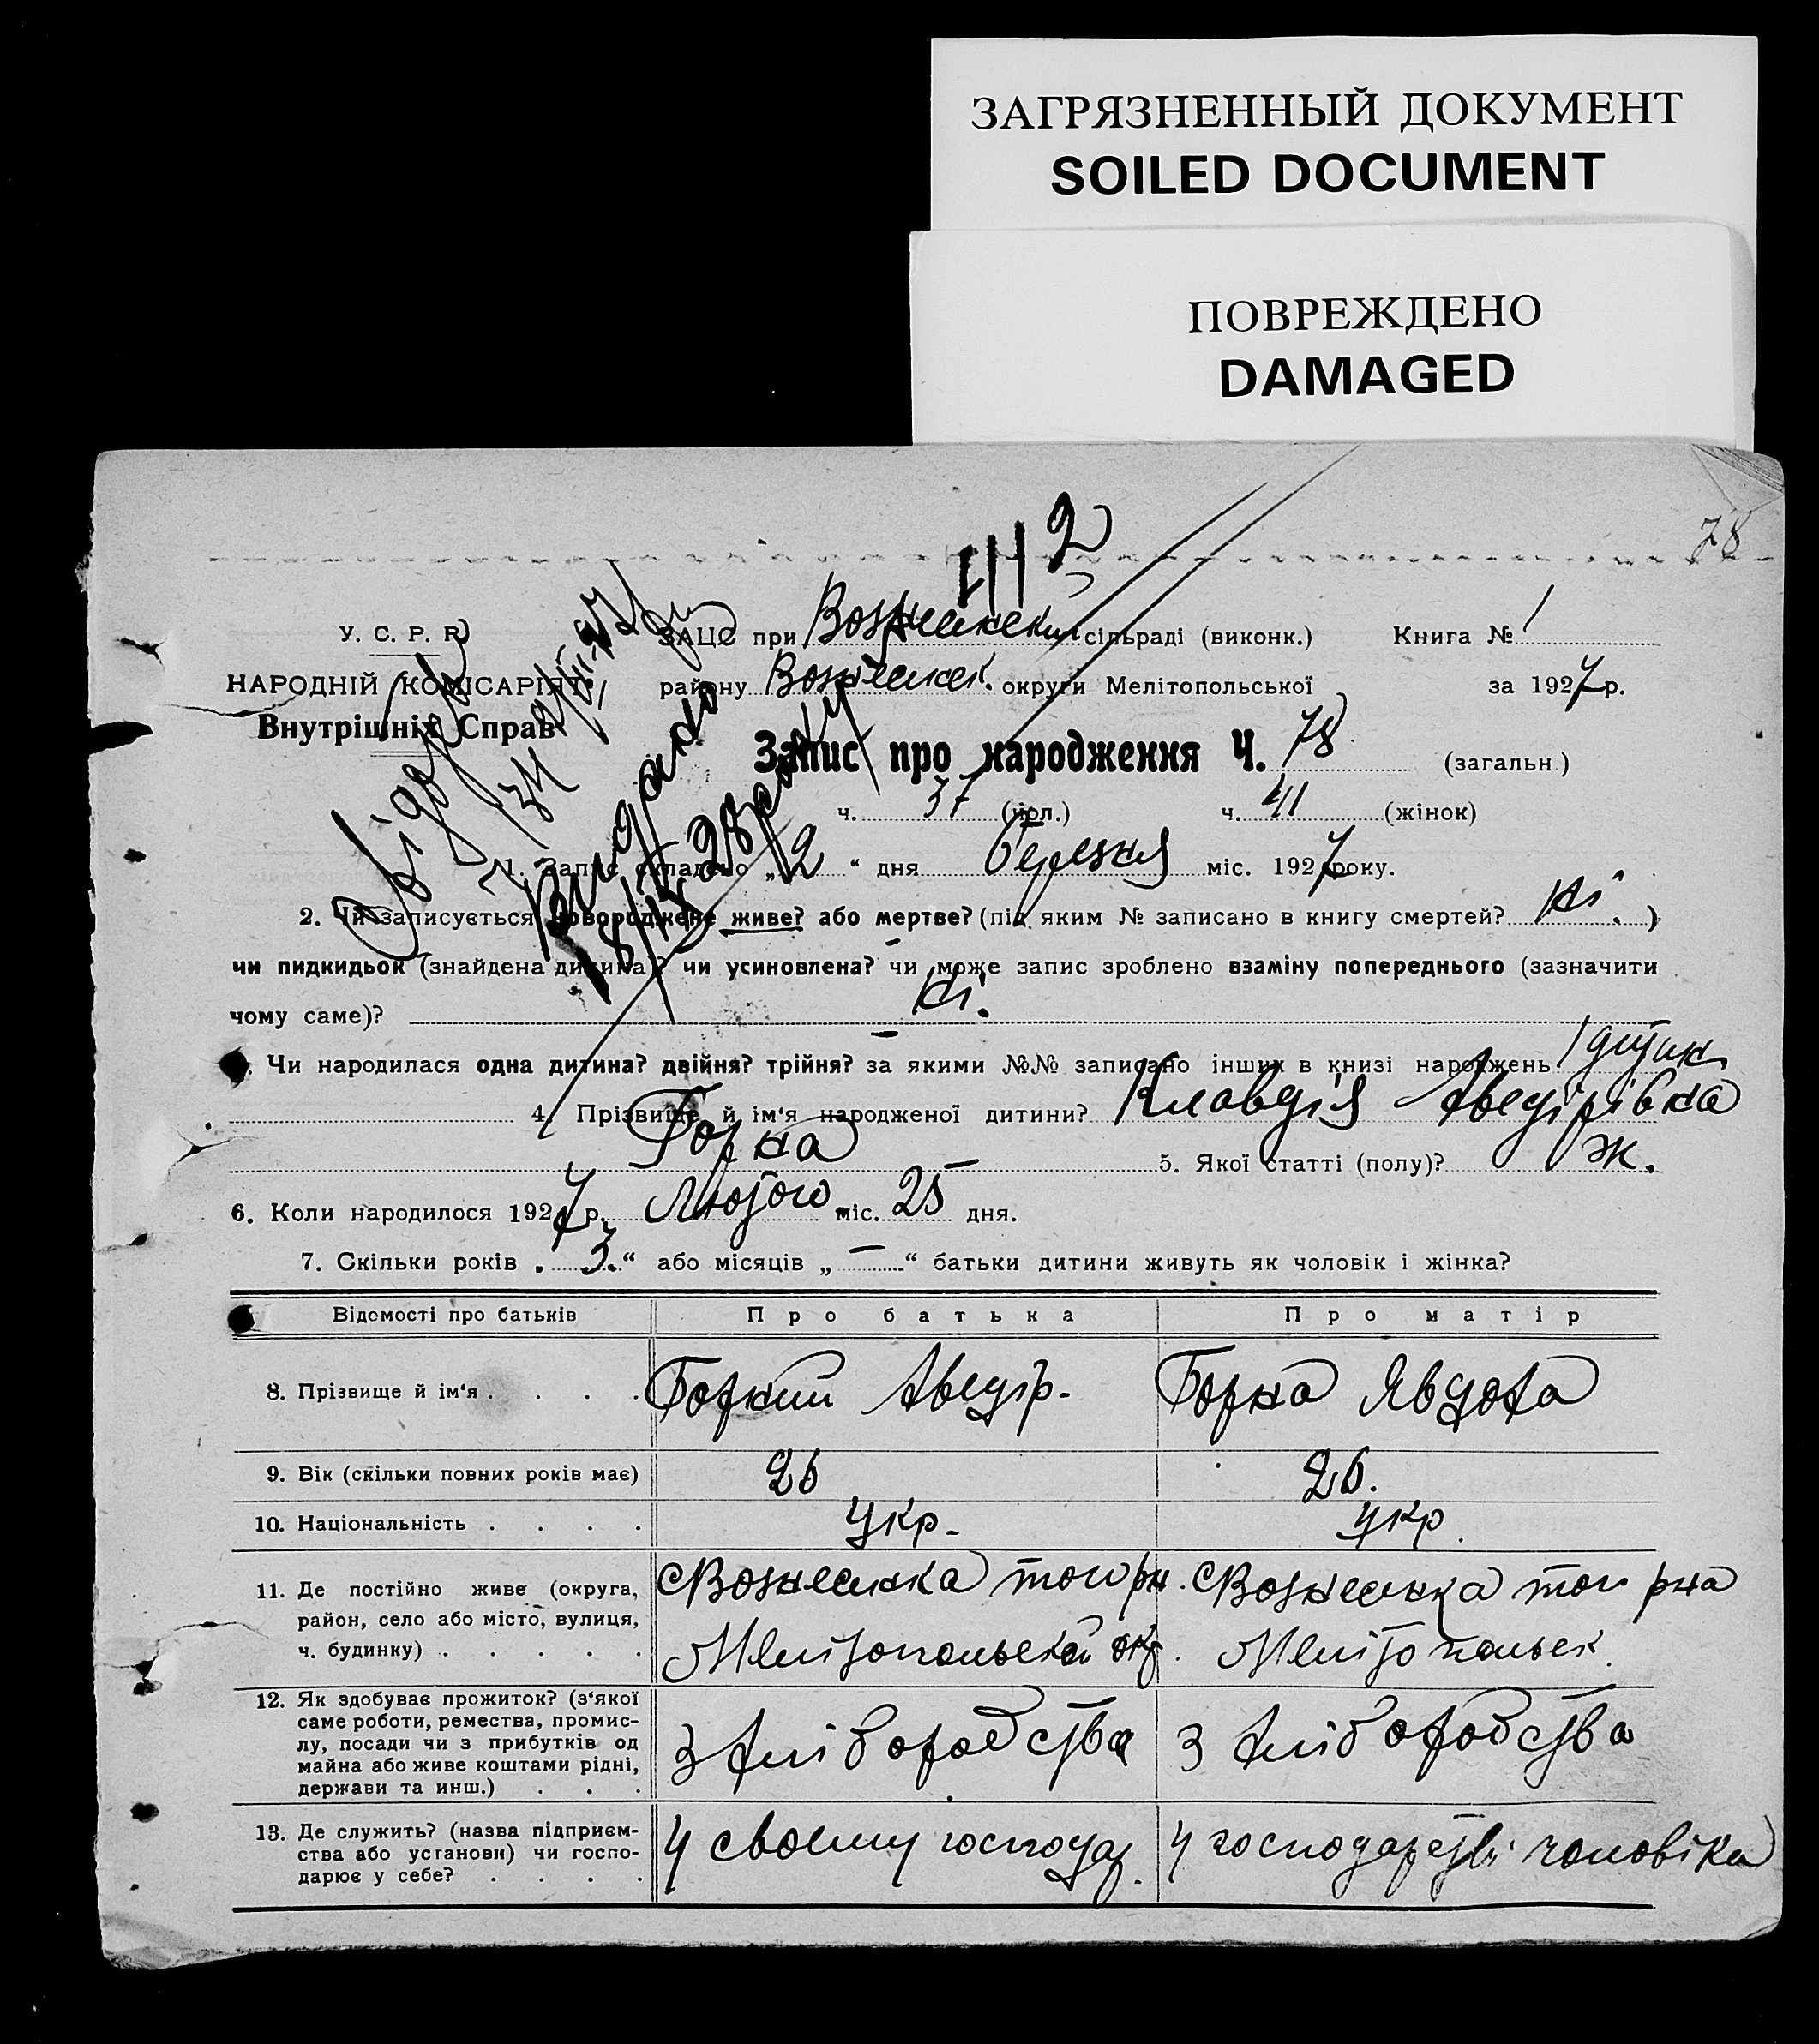 ЗАГРЯЗНЕННЫЙ ДОКУМЕНТ
SOILED DOCUMENT
ПОВРЕЖДЕНО
DAMAGED
78
2
У. С. Р. Р.
НАРОДНІЙ КОМІСАРІЯТ
Внутрішніх Справ
ЗАЦС при Вознесенский сільраді (виконк.) Книга № 1
району Вознесенск. округи Мелітопольської за 1927 р.
Запис про народження Ч. 78 (загальн.)
ч. 37 (чол.) ч. 41 (жінок)
1. Запис складено „2“ дня березня міс. 1927 року.
2. Чи записується новороджене живе? або мертве? (під яким № записано в книгу смертей? ні. )
чи пидкидьок (знайдена дитина)? чи усиновлена? чи може запис зроблено взаміну попереднього (зазначити
чому саме)? ні.
Чи народилася одна дитина? двійня? трійня? за якими №№ записано інших в книзі народжень 1
4. Прізвище й ім‘я народженої дитини? Клавдія Аведірівна
Горна 5. Якої статті (полу)? ж.
6. Коли народилося 1927 р. Лютого міс. 25 дня.
7. Скільки років „3“ або місяців „—“ батьки дитини живуть як чоловік і жінка?
Відомості про батьків Про батька Про матір
8. Прізвище й ім‘я . . . . Горний Аведір. Горна Явдоха
9. Вік (скільки повних років має) 26 26.
10. Національність . . . . Укр. Укр.
11. Де постійно живе (округа, район, село або місто, вулиця, ч. будинку) . . . . .
с Вознесенка того рн. с Вознесенка того рна
Мелитопольской окр. Мелитопольск.
12. Як здобуває прожиток? (з‘якої
саме роботи, ремества, промис-
лу, посади чи з прибутків од
майна або живе коштами рідні,
держави та инш.) . . .
З хліборобства З хліборобства
13. Де служить? (назва підприєм-
ства або установи) чи госпо-
дарює у себе? . . . .
У своему господар. У господарстві чоловіка